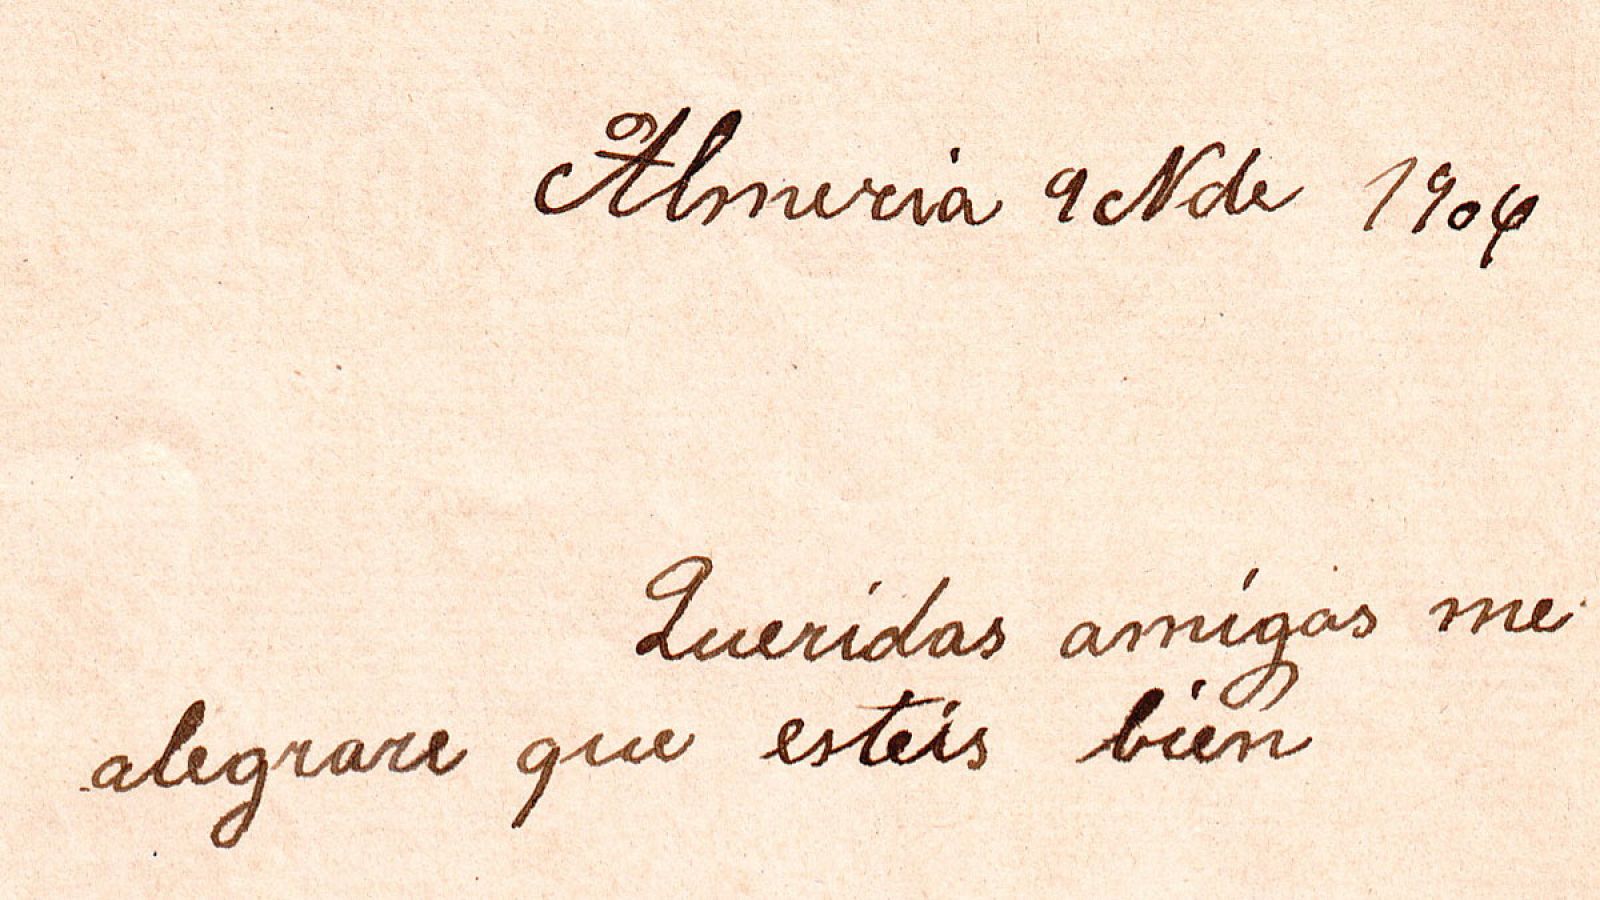 Almeria 9 N de 1904
Queridas amigas me
alegrare que esteis bien